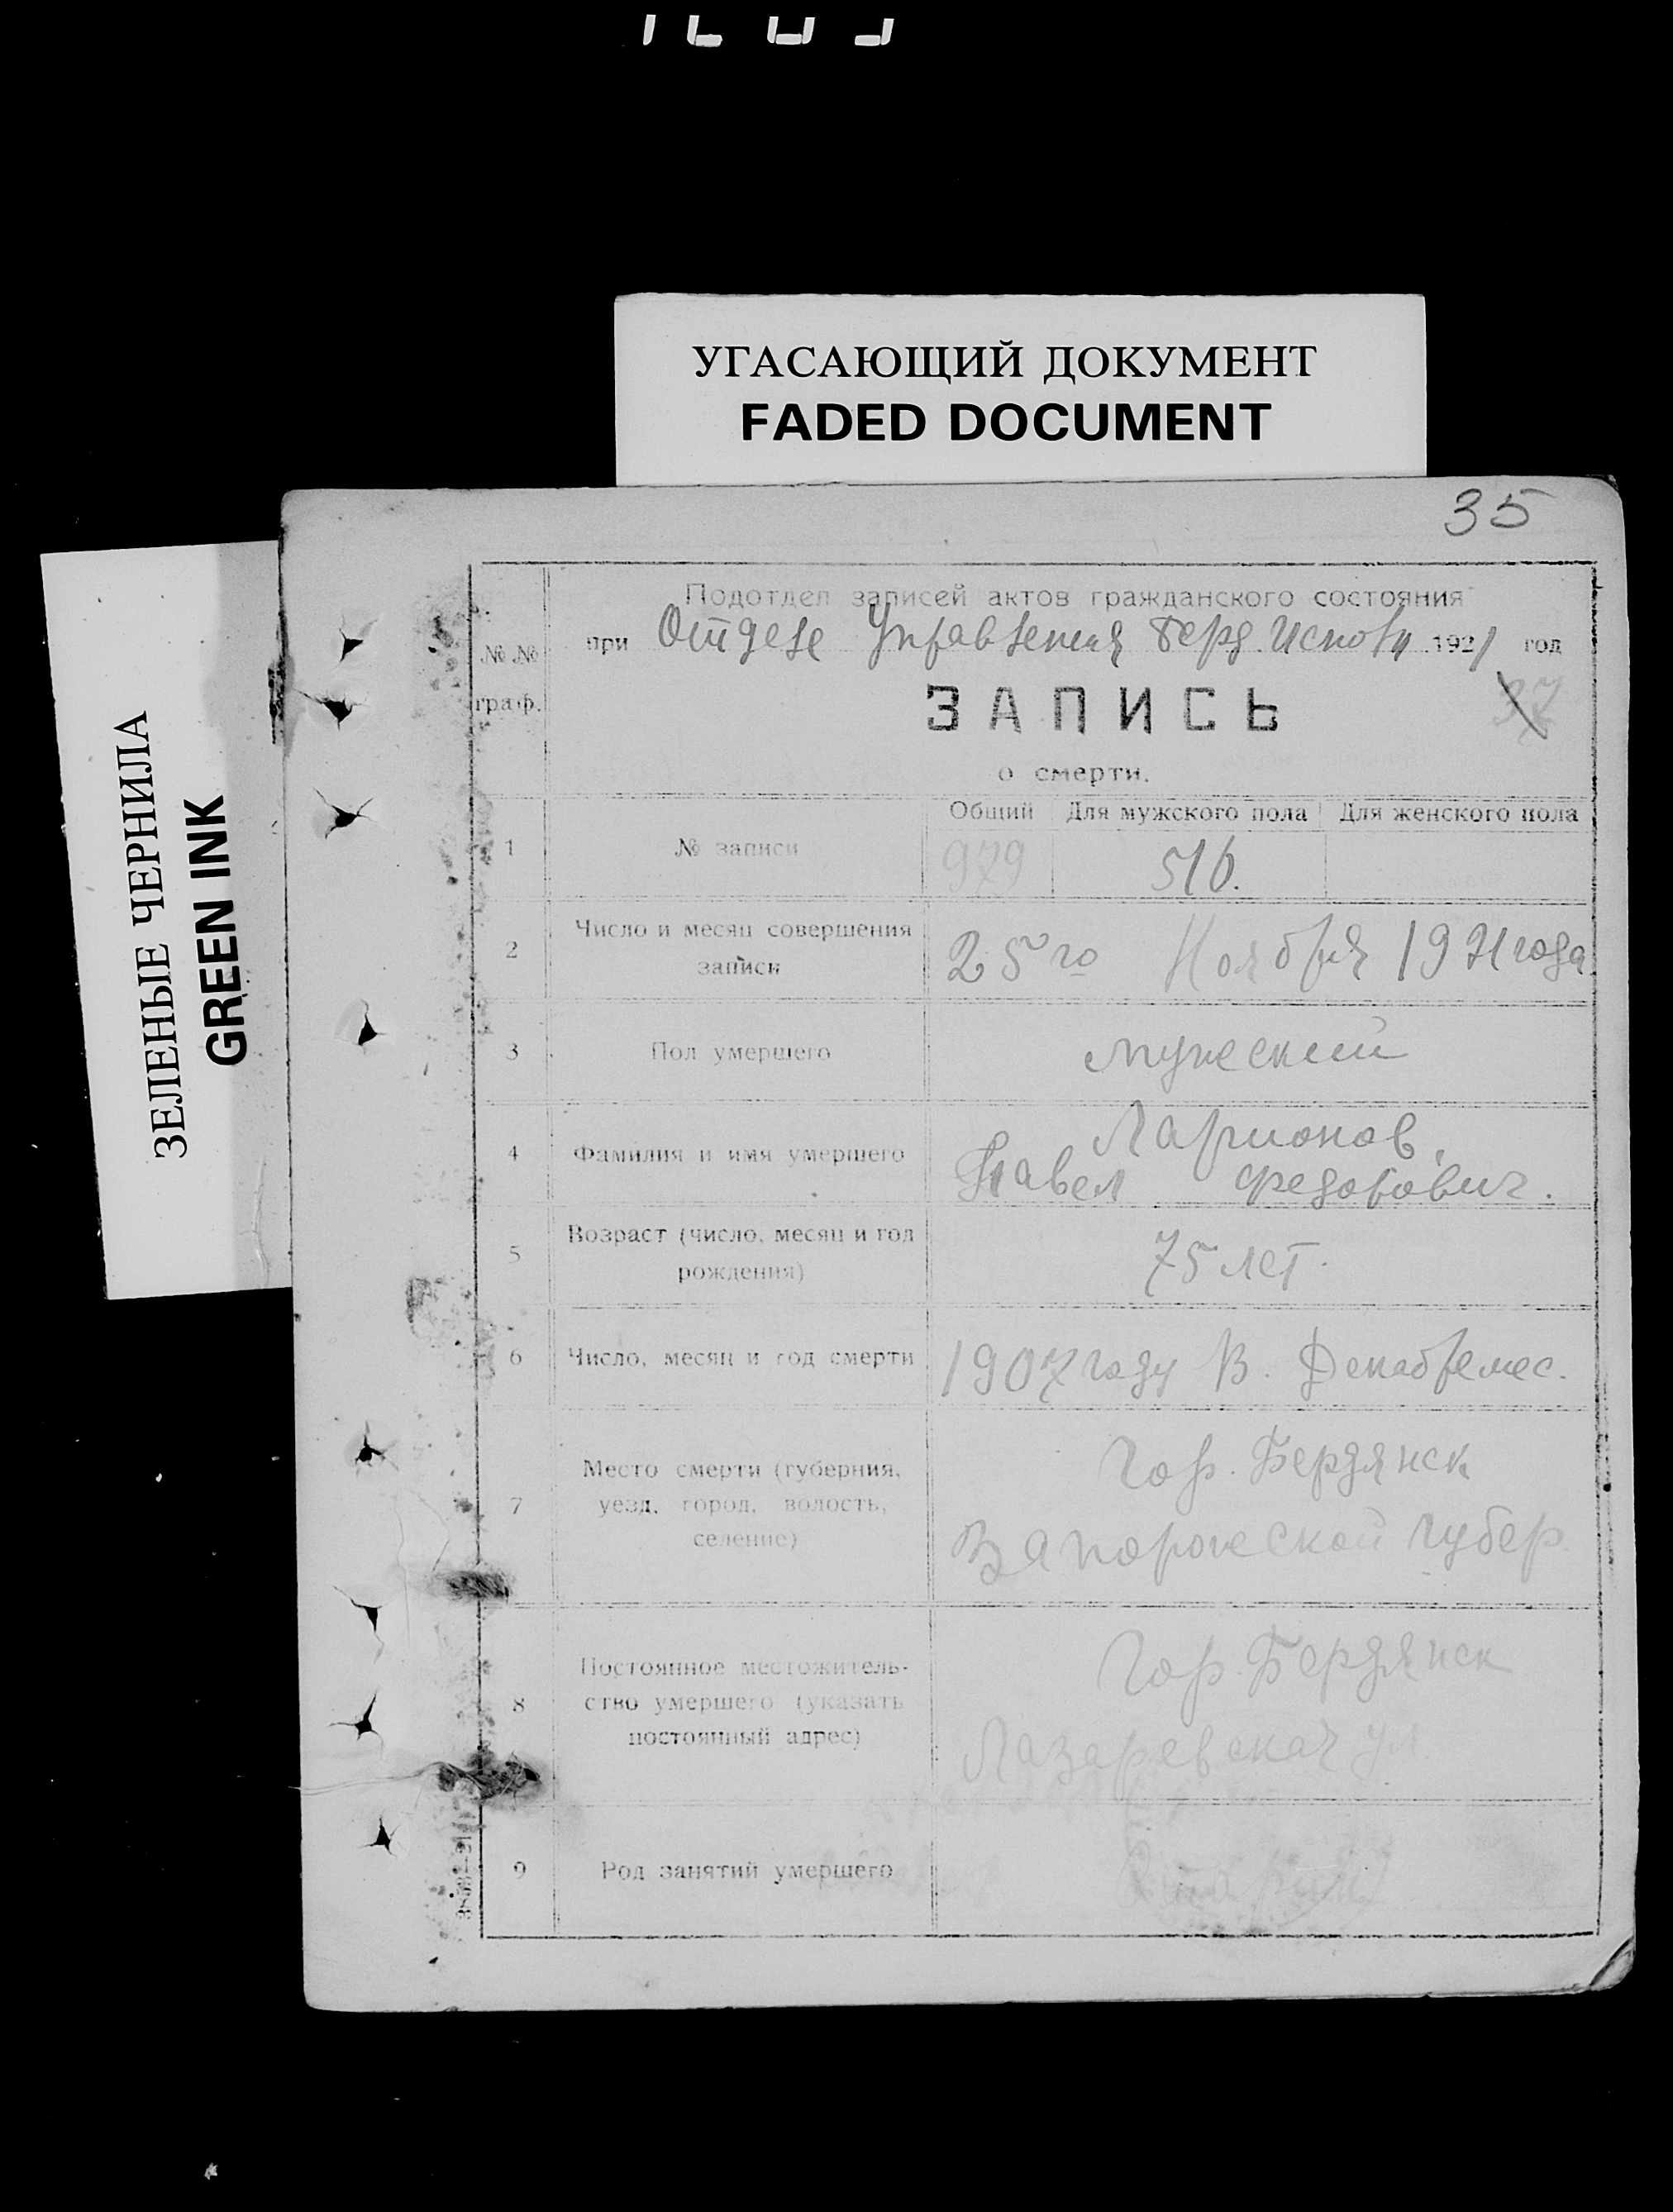 УГАСАЮЩИЙ ДОКУМЕНТ
FADED DOCUMENT
ЗЕЛЕНЫЕ ЧЕРНИЛА
GREEN INK
35
№ № граф.
Подотдел записей актов гражданского состояния
при Отделе Управления Берд. 1921 год
ЗАПИСЬ
37
о смерти.
Общий Для мужского пола Для женского пола
1 № записи 979 516.
2 Число и месяц совершения записи 25го Ноября 1921 года
3 Пол умершего мужеский
4 Фамилия и имя умершего Ларионов
Павел Федорович.
5 Возраст (число, месяц и год рождения) 75 лет.
6 Число, месяц и год смерти 1907 году В. Декабре мес.
7 Место смерти (губерния, уезд, город, волость, селение) Гор. Бердянск
Запорожеской губер.
8 Постоянное местожитель-
ство умершего (указать постоянный адрес) Гор. Бердянск
Лазаревская ул.
9 Род занятий умершего